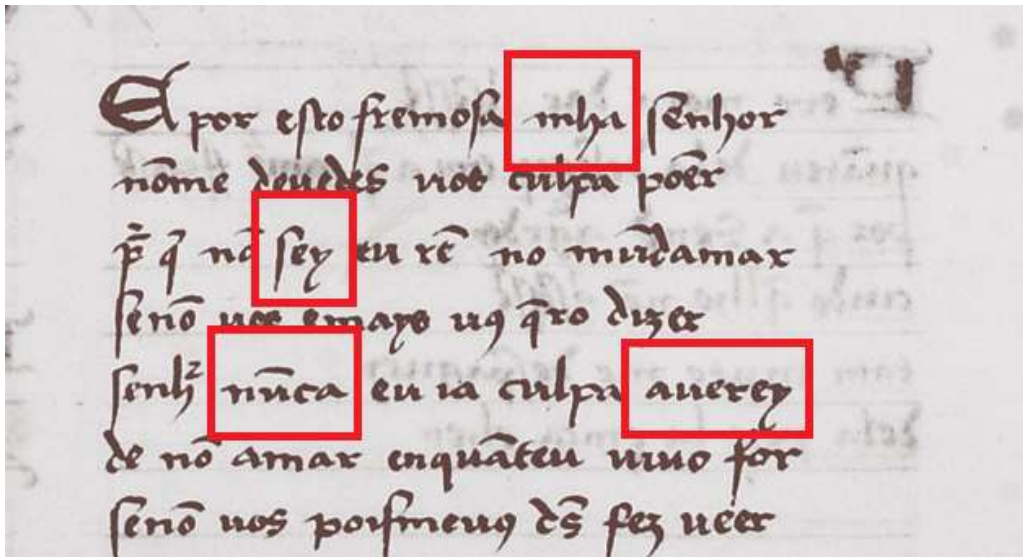 E por esto fremosa mha senhor
nōme deuedes uos culpa poēr
pr̄ q̄ nō sey eu rē no mūdamar
senō uos emays uꝯ q̄ro dizer
senhʳ nūca eu ia culpa auerey
de nō amar enquāteu uiuo for
senō uos poysmeuꝯ ds̄ fez ueer